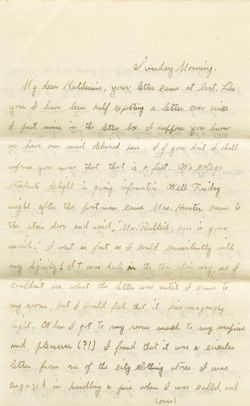 Sunday Morning.
My dear Katherine, your letter came at last. Like
you I have been half expecting a letter ever since
I put mine in the letter box. I suppose you know
we have our mail delivered here. If you don't I shall
inform you now that that is a fact. We college
students delight in giving information. Well Friday
night after the postman came Mrs. Hunter came to
the stair door and said, "Mr. Bullock, here is your
mail." I went as fast as I could consistently with
my dignity! It was dark in the stair way, so I
couldn't see what the letter was until I came to
my room, but I could feel that it was
light. When I got to my room much to my surprise
and pleasure (?!) I found that it was a circular
letter from one of the city clothing stores. I was
engaged in kindling a fire when I was called, and
(over)